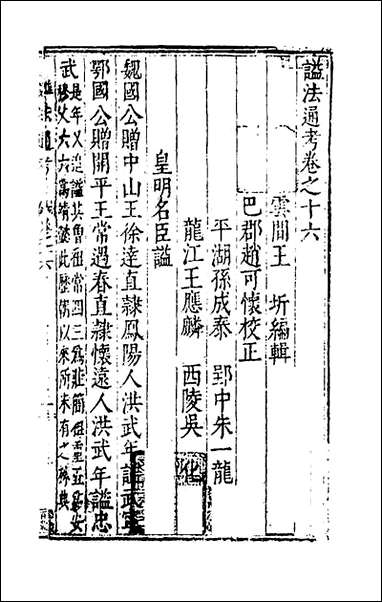 謚法通考卷之十六
雲間王　圻編輯
巴郡趙可懷校正
平湖孫成泰　郢中朱一龍
龍江王應麟　西陵吳　化
皇明名臣謚
魏國公贈中山王徐達直隸鳳陽人洪武年謚武寧
鄂國公贈開平王常遇春直隸懷遠人洪武年謚忠
武是年又追謚其曾祖常四三為莊簡祖重五為安
穆父六六為靖懿此歷代以來所未有之殊典